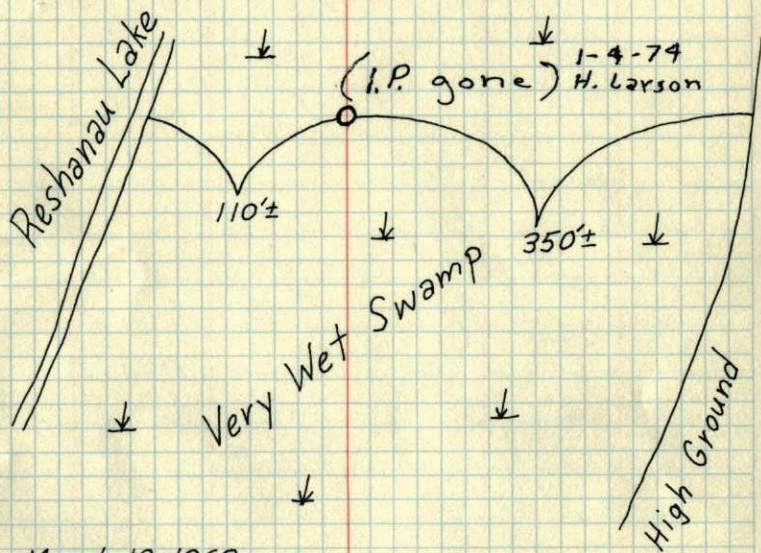 Reshanau Lake
(I.P. gone) 1-4-74
H. Larson
110'±
350'±
Very Wet Swamp
High Ground